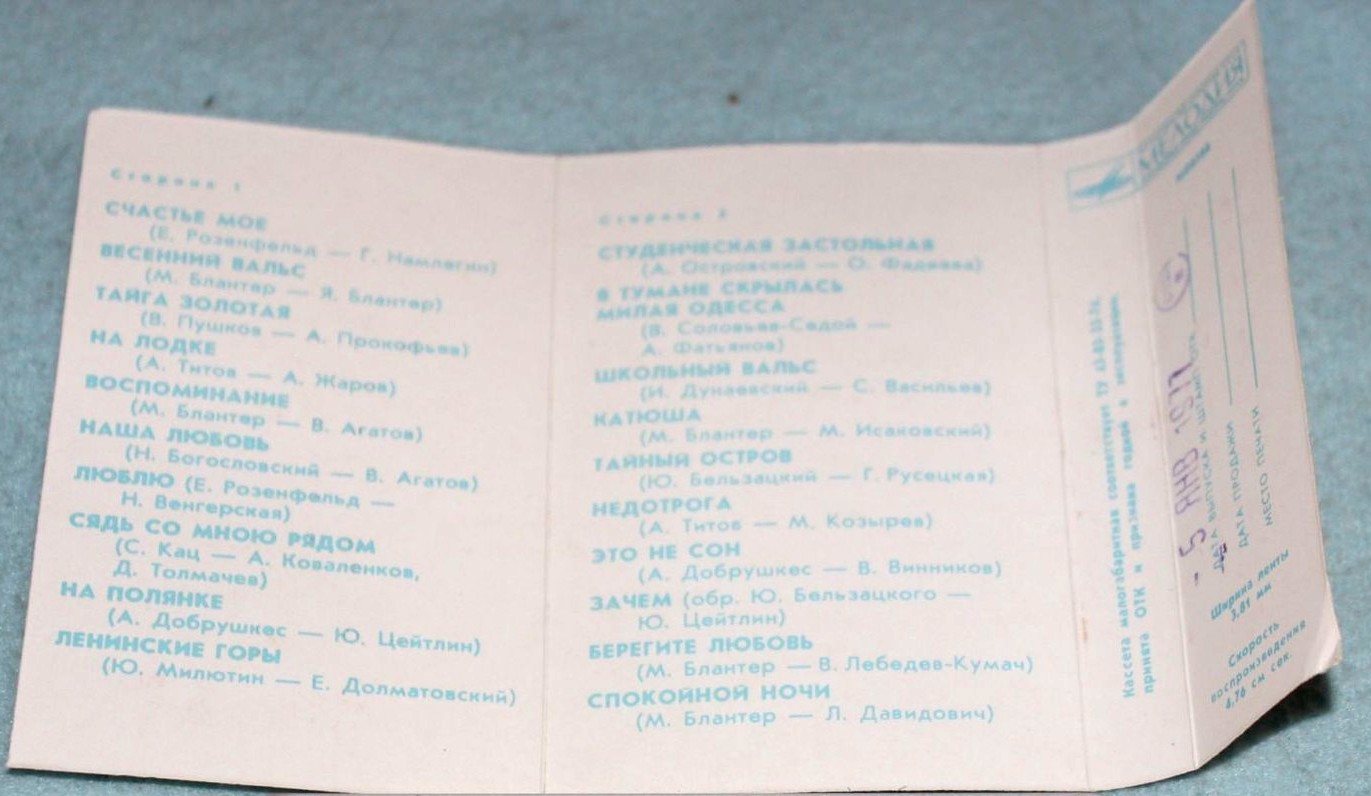 Сторона 1
СЧАСТЬЕ МОЕ
(Е. Розенфельд — Г. Намлегин)
ВЕСЕННИЙ ВАЛЬС
(М. Блантер — Я. Блантер)
ТАЙГА ЗОЛОТАЯ
(В. Пушков — А. Прокофьев)
НА ЛОДКЕ
(А. Титов — А. Жаров)
ВОСПОМИНАНИЕ
(М. Блантер — В. Агатов)
НАША ЛЮБОВЬ
(Н. Богословский — В. Агатов)
ЛЮБЛЮ (Е. Розенфельд —
Н. Венгерская)
СЯДЬ СО МНОЮ РЯДОМ
(С. Кац — А. Коваленков,
Д. Толмачев)
НА ПОЛЯНКЕ
(А. Добрушкес — Ю. Цейтлин)
ЛЕНИНСКИЕ ГОРЫ
(Ю. Милютин — Е. Долматовский)
Сторона 2
СТУДЕНЧЕСКАЯ ЗАСТОЛЬНАЯ
(А. Островский — О. Фадеева)
В ТУМАНЕ СКРЫЛАСЬ
МИЛАЯ ОДЕССА
(В. Соловьев-Седой —
А. Фатьянов)
ШКОЛЬНЫЙ ВАЛЬС
(И. Дунаевский — С. Васильев)
КАТЮША
(М. Блантер — М. Исаковский)
ТАЙНЫЙ ОСТРОВ
(Ю. Бельзацкий — Г. Русецкая)
НЕДОТРОГА
(А. Титов — М. Козырев)
ЭТО НЕ СОН
(А. Добрушкес — В. Винников)
ЗАЧЕМ (обр. Ю. Бельзацкого —
Ю. Цейтлин)
БЕРЕГИТЕ ЛЮБОВЬ
(М. Блантер — В. Лебедев-Кумач)
СПОКОЙНОЙ НОЧИ
(М. Блантер — Л. Давидович)
МЕЛОДИЯ
Кассета малогабаритная соответствует ТУ
принята ОТК и признана годной к эксплуатации.
- 5 ЯНВ 1977
ДАТА ВЫПУСКА И ШТАМП ОТК
ДАТА ПРОДАЖИ
МЕСТО ПЕЧАТИ
Ширина ленты
3,81 мм
Скорость
воспроизведения
4,76 см сек.